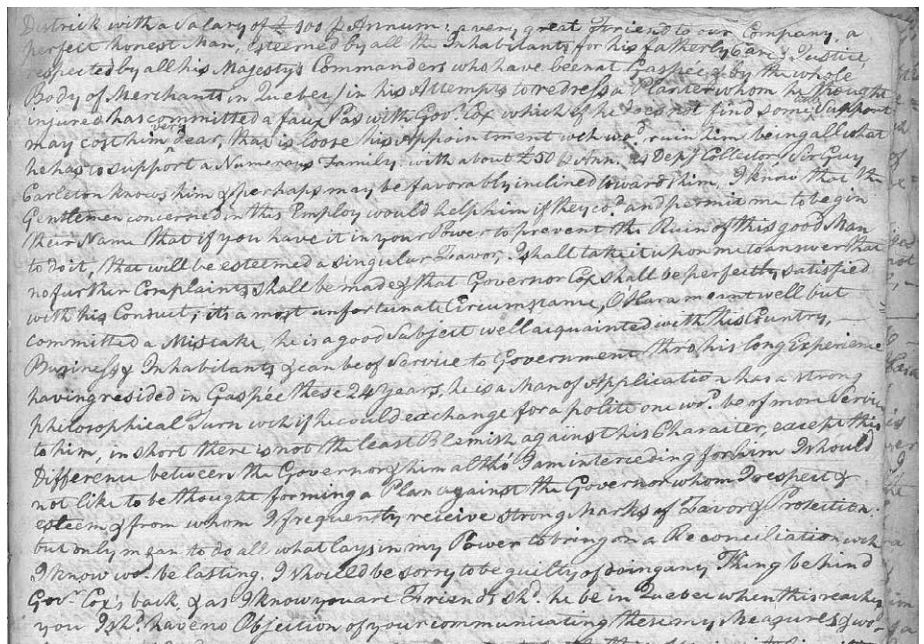 District with a Salary of £100 p Annum: a very great Friend to our Company, a
perfect honest Man, esteemed by all the Inhabitants for his fatherly Care & Justice,
respected by all his Majesty's Commanders who have been at Gaspée & by the whole
Body of Merchants in Quebec, in his Attempts to redress a Planter whom he thought
injured has committed a faux Pas with Govr. Cox which if he does not find some Support
may cost him very dear, that is loose his Appointment wch wod. ruin him being all what
he has to support a Numerous Family with about £50 p Ann. as Depy Collector; Sir Guy
Carleton knows him & perhaps may be favorably inclined toward him, I know that the
Gentlemen concerned in this Employ would help him if they cod. and permit me to begin
their Name that if you have it in your Power to prevent the Ruin of this good Man
to do it, that will be esteemed a singular Favor, I shall take it upon me to answer that
no further Complaints shall be made & that Governor Cox shall be perfectly satisfied
with his Conduct; its a most unfortunate Circumstance, OHara meant well but
committed a Mistake, he is a good Subject well acquainted with this Country,
Business & Inhabitants & can be of Service to Government thro his long Experience
having resided in Gaspée these 24 years, he is a Man of Application has a strong
philosophical Turn wch if he could exchange for a polite one wod. be of more Service
to him, in short there is not the least Blemish against his Character, except this
Difference between the Governor & him altho' I am interceding for him I should
not like to be thought forming a Plan against the Governor whom I respect &
esteem & from whom I frequently receive strong Marks of Favor & Protection.
but only mean to do all what lays in my Power to bring on a Reconciliation wch
I know wod. be lasting. I should be sorry to be guilty of doing any Thing behind
Govr. Cox's back, & as I know you are Friends shd. he be in Quebec when this reaches
you I shd. have no Objection of your communicating these my Measures & wo